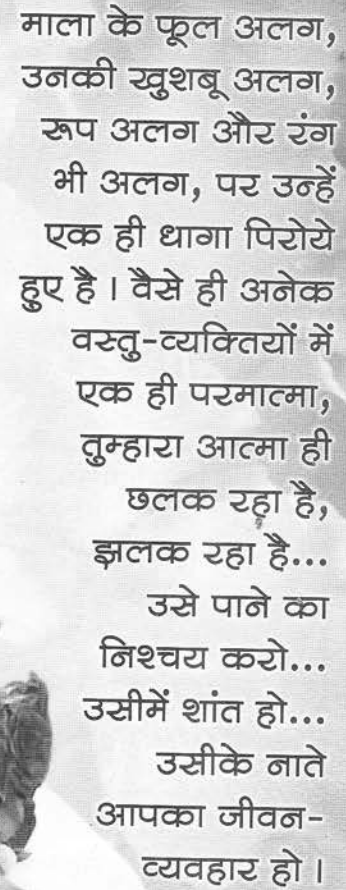 माला के फूल अलग,
उनकी खुशबू अलग,
रूप अलग और रंग
भी अलग, पर उन्हें
एक ही धागा पिरोये
हुए है । वैसे ही अनेक
वस्तु-व्यक्तियों में
एक ही परमात्मा,
तुम्हारा आत्मा ही
छलक रहा है,
झलक रहा है...
उसे पाने का
निश्चय करो...
उसीमें शांत हो...
उसीके नाते
आपका जीवन-
व्यवहार हो ।